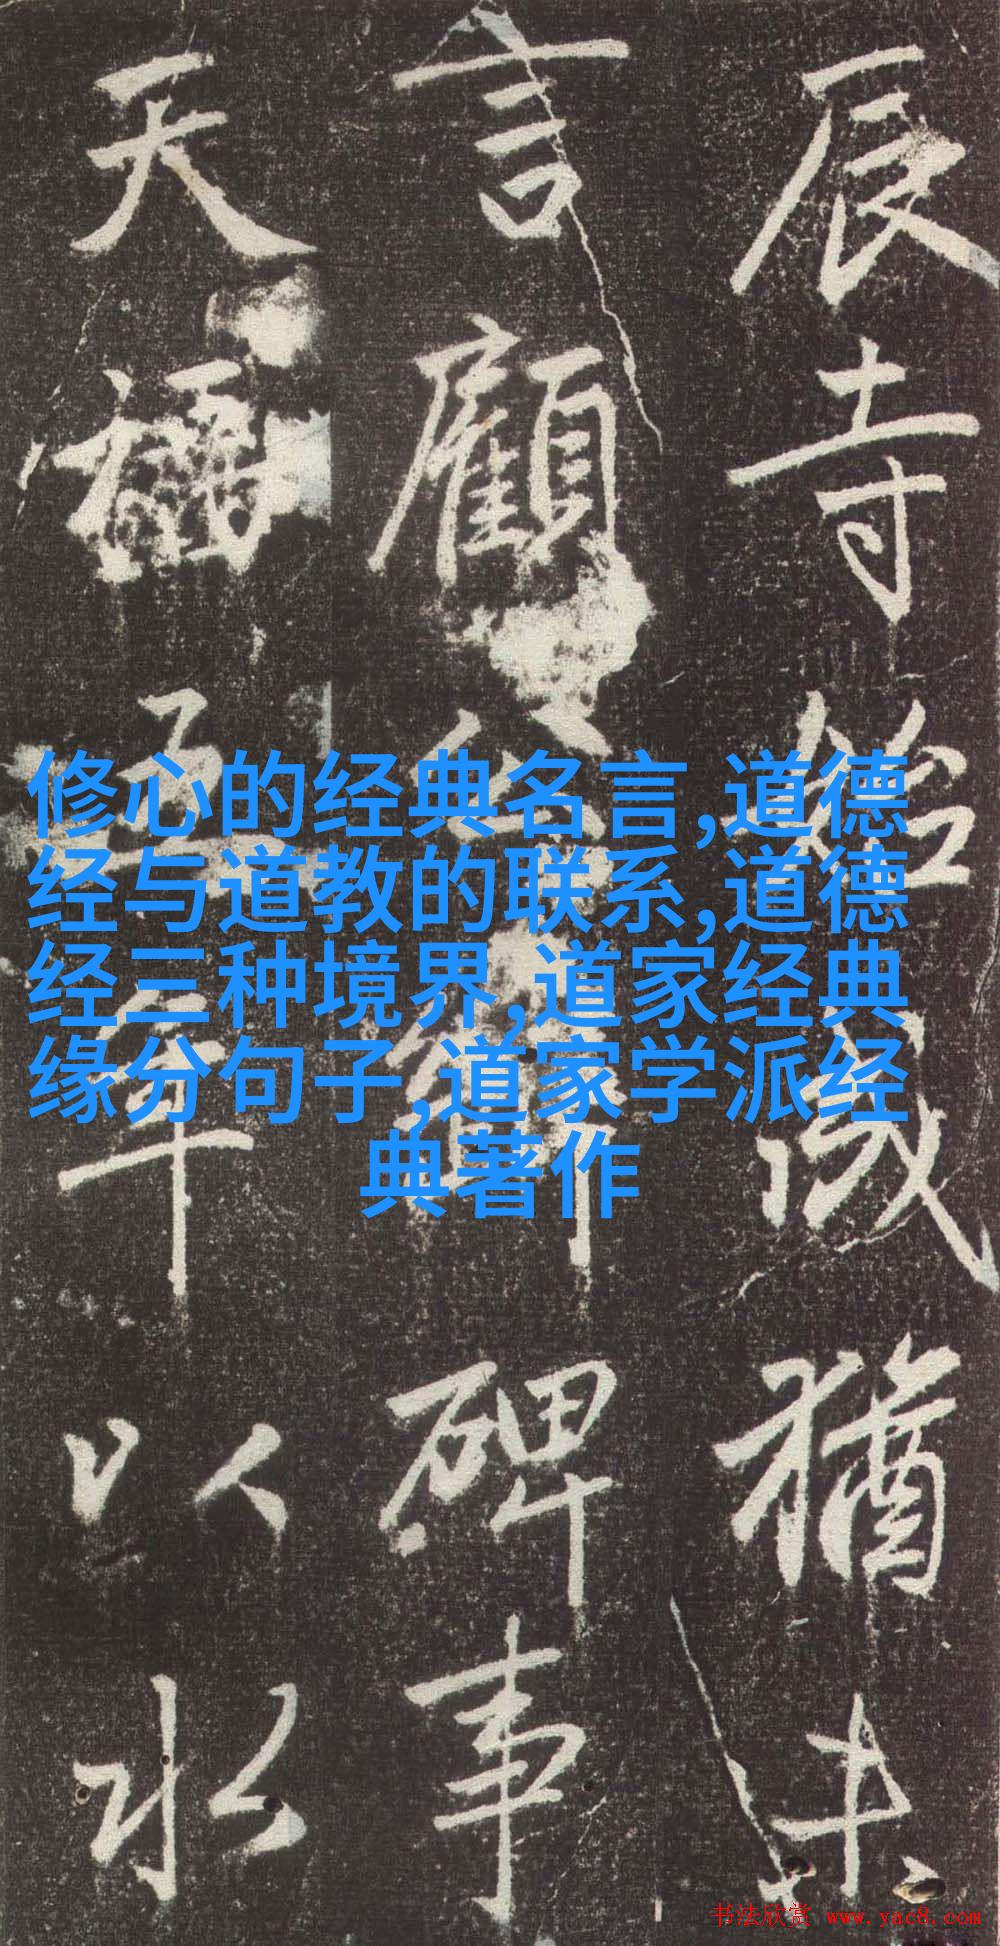 辰寺始成猶
言顧碑事
天五年以水
修心的经典名言,道德
经与道教的联系,道德
经三种境界,道家经典
缘分句子,道家学派经
典著作
书法欣赏 www.yac8.com